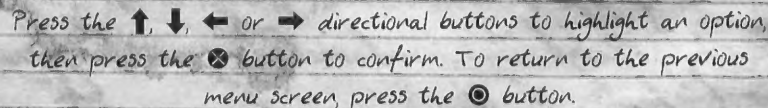 Press the ↑, ↓, ← or → directional buttons to highlight an option,
then press the ⊗ button to confirm. To return to the previous
menu screen, press the ◉ button.